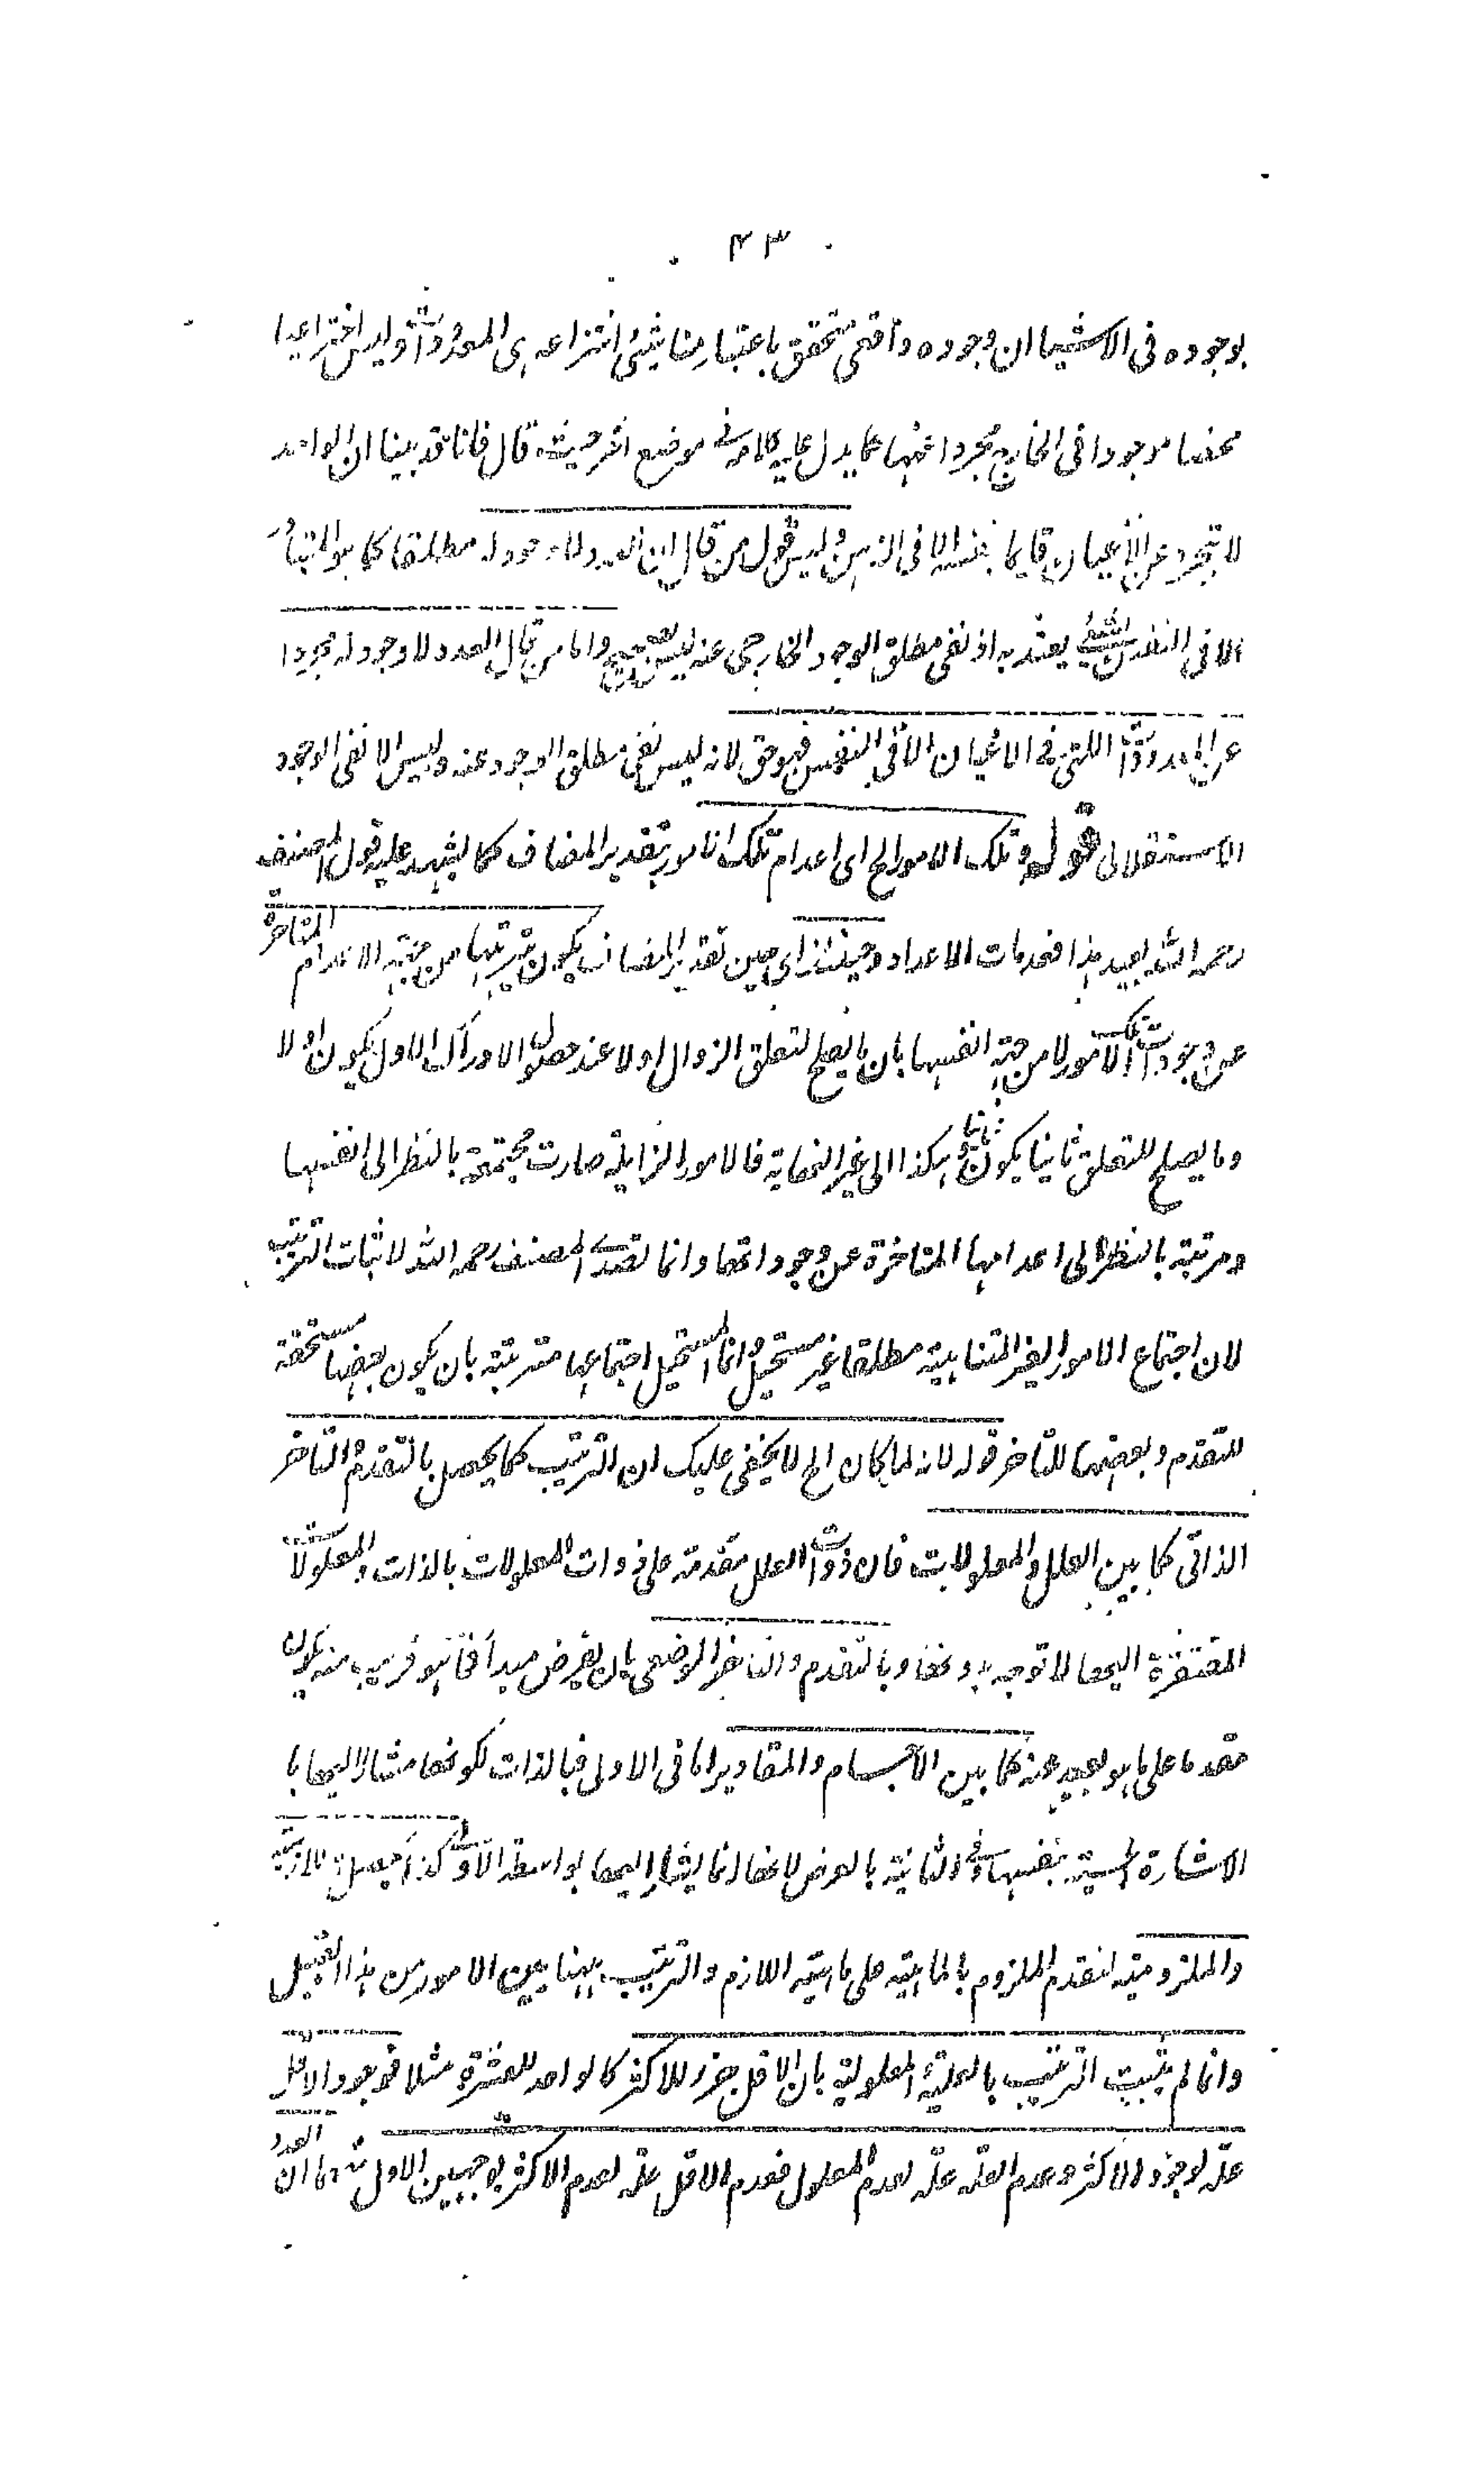 ٤٣
بوجوده فى الاشيا ان وجوده واقعى متحقق باعتبار مناشئ انتزاعه وهى المعدودات وليس اختراعيا
محضا موجودا فى الخارج مجردا عنها كما يدل عليه كلامه فى موضع اخر حيث قال فانا قد بينا ان الواحد
لا يتجرد عن الأعيان قايما بنفسه الا فى الذهن وليس قول من قال ان العدد لا وجود له مطلقا كما هو المتبادر
الا فى النفس بشئ يعتد به اذ نفى مطلق الوجود الخارجى عنه ليس بصحيح واما من قال العدد لا وجود له مجردا
عن المعدودات اللتى فى الاعيان الا فى النفس فهو حق لانه ليس نفى مطلق الوجود عنه وليس الا نفى الوجود
الاستقلالى قوله وتلك الامور الخ اى اعدام تلك الامور بتقدير المضاف كما يشهد عليه قول المصنف
رحمه الله بعيد هذا فعدمات الاعداد وحينئذ اى حين تقدير المضاف يكون ترتبها من جهة الاعدام المتاخرة
عن وجودات تلك الامور لا من جهة انفسها بان ما يصلح لتعلق الزوال اولا عند حصول الادراك الاول يكون اولا
وما يصلح للتعلق ثانيا يكون ثانيا وهكذا الى غير النهاية فالامور الزايلة صارت مجتمعة بالنظر الى انفسها
ومرتبة بالنظر الى اعدامها المتاخرة عن وجوداتها وانما تصدى المصنف رحمه الله لاثبات الترتيب
لان اجتماع الامور الغير المتناهية مطلقا غير مستحيل وانما المستحيل اجتماعها مترتبة بان يكون بعضها مستحقة
للتقدم وبعضها للتأخر قوله لانه لما كان الخ لا يخفى عليك ان الترتيب كما يحصل بالتقدم والتاخر
الذاتى كما بين العلل والمعلولات فان ذوات العلل مقدمة على ذوات المعلولات بالذات والمعلولات
المفتقرة اليها لا توجد بدونها وبالتقدم والتاخر الوضعى بان يفرض مبدأ فما هو قريب منه يكون
مقدما على ما هو بعيد عنه كما بين الأجسام والمقادير اما فى الاولى فبالذات لكونها مشارا اليها با
الاشارة الحسية بنفسها وفى الثانية بالعرض لانها انما يشار اليها بواسطة الاولى كذا يحصل باللازمية
والملزومية لتقدم الملزوم بالماهية على ماهية اللازم والترتيب ههنا بين الامور من هذا القبيل
وانما لم يثبت الترتيب بالعلية والمعلولية بان الاقل جزء للاكثر كالواحد للعشرة مثلا فوجود الاقل
علة لوجود الاكثر وعدم العلة علة لعدم المعلول فعدم الاقل علة لعدم الاكثر بوجهين الاول ان العدد